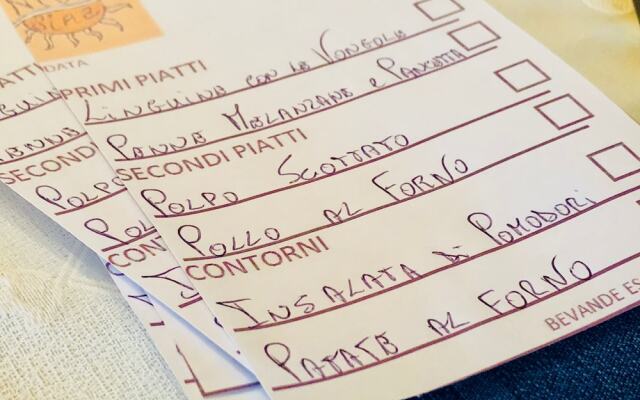 DATA
PRIMI PIATTI
LINGUINE CON LE VONGOLE
PENNE MELANZANE E PANCETTA
SECONDI PIATTI
POLPO SCOTTATO
POLLO AL FORNO
CONTORNI
INSALATA Di POMODORi
PATATE AL FORNO
BEVANDE ES